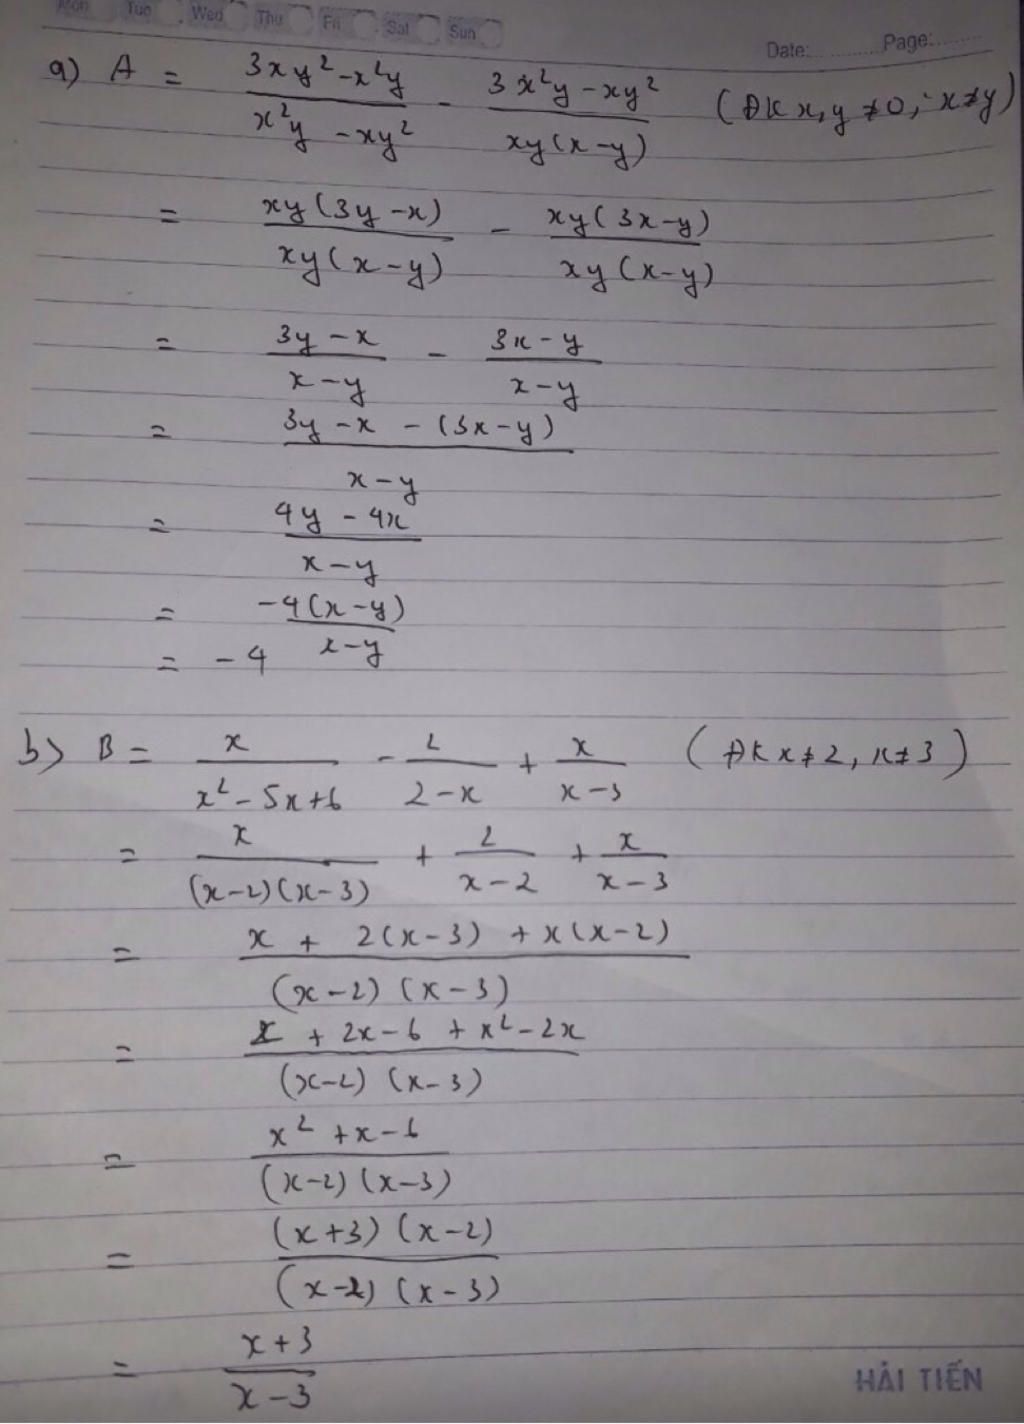 Mon Tue Wed Thu Fri Sat Sun
Date:.......... Page:..........
a) A = (3xy² - x²y)/(x²y - xy²) - (3x²y - xy²)/(xy(x-y)) (ĐK x, y ≠ 0, x ≠ y)
= xy(3y-x)/(xy(x-y)) - xy(3x-y)/(xy(x-y))
= (3y-x)/(x-y) - (3x-y)/(x-y)
= (3y-x-(3x-y))/(x-y)
= (4y-4x)/(x-y)
= -4(x-y)/(x-y)
= -4
b) B = x/(x²-5x+6) - 2/(2-x) + x/(x-3) (ĐK x ≠ 2, x ≠ 3)
= x/((x-2)(x-3)) + 2/(x-2) + x/(x-3)
= (x + 2(x-3) + x(x-2))/((x-2)(x-3))
= (x + 2x-6 + x²-2x)/((x-2)(x-3))
= (x²+x-6)/((x-2)(x-3))
= ((x+3)(x-2))/((x-2)(x-3))
= (x+3)/(x-3)
HẢI TIẾN